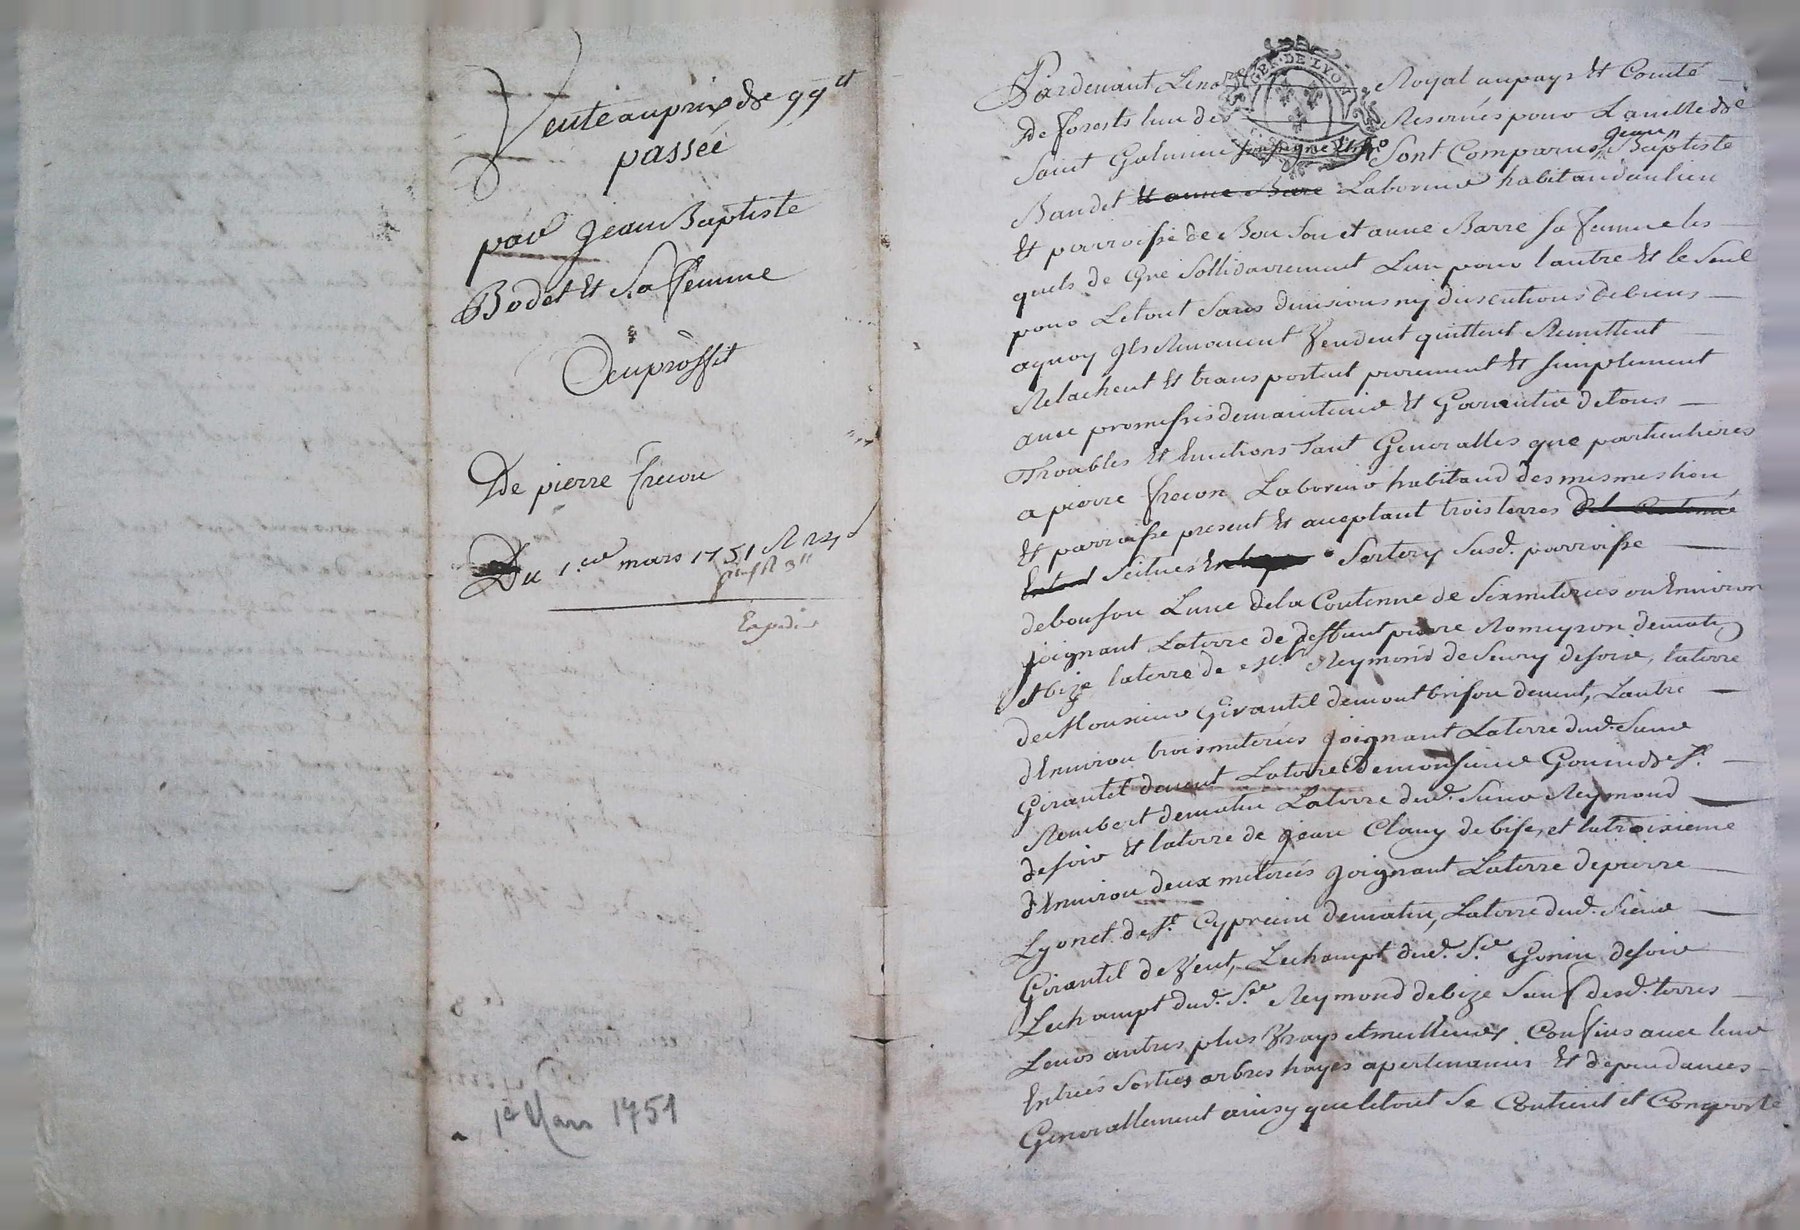 Vente au prix de 99ᵗᵗ
passée
par Jean Baptiste
Bodet Et Sa femme
Au proffit
De pierre frecon
Du 1.er mars 1751
Expedié
1er Mars 1751
GEN. DE LYON
Pardevant Royal au pays Et Comté
de forests Reservés pour La ville de
Saint Galmier soussigné Sont Comparus jean Baptiste
Baudet Et anne Barre Laboureur habitand au lieu
Et parroisse de Bonson et anne Barre sa femme les
quels de Gré Sollidairement Lun pour lautre Et le Seul
pour Letout Sans divisions nÿ discutions de biens
aquoy Ils Renoncent Vendent quittent Remettent
Relachent Et transportent purement Et simplement
avec promesses de maintenir Et Garantir de tous
Throubles Et Evictions Tant Generalles que particulieres
a pierre frecon Laboureur habitand des mesmes lieu
Et parroisse present Et aceptant trois terres
Scitués Sertery Susd. parroisse
de bonson Lune dela Contenue de Six meterées ou Environ
joignant Laterre de deffunt pierre Romeyron de matin
Et bize laterre de Reymond de Seury de soir, laterre
de Monsieur Girantet de montbrison de vent, Lautre
d'Environ trois meterées joignant Laterre dud. Sieur
Girantet de vent Laterre de monsieur Gonin de St.
Rembert de matin Laterre dud. Sieur Reymond
de soir Et laterre de jean Clouy de bise, et la troisieme
d'Environ deux meterées joignant Laterre de pierre
Lyonet de St. Cyprien de matin, Laterre dud. Sieur
Girantet de Vent, Le champt dud. Sr. Gonin de soir
Le champt dud. Sr. Reymond de bize Sauf desd. terres
Leurs autres plus Vrays et meilleurs Confins avec leurs
Entrées Sorties arbres hayes apertenances Et dependances
Generallement ainsy que letout Se Contient et Comporte